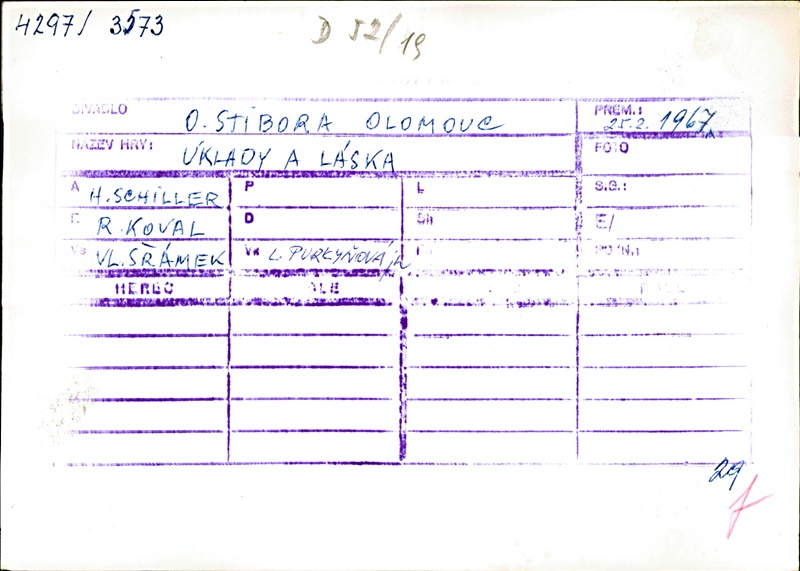 4297/ 3573
D 52/19
DIVADLO O. STIBORA OLOMOUC PREM.: 25.2. 1967
NÁZEV HRY: ÚKLADY A LÁSKA FOTO
A H. SCHILLER P L S.G.:
R. KOVAL D E/
VS VL. SRÁMEK VK L. PURKYŇOVÁ
HEREC
29